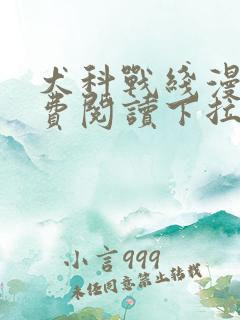 犬科戰綫漫
費閱讀下拉
小言999
未经同意禁止转载